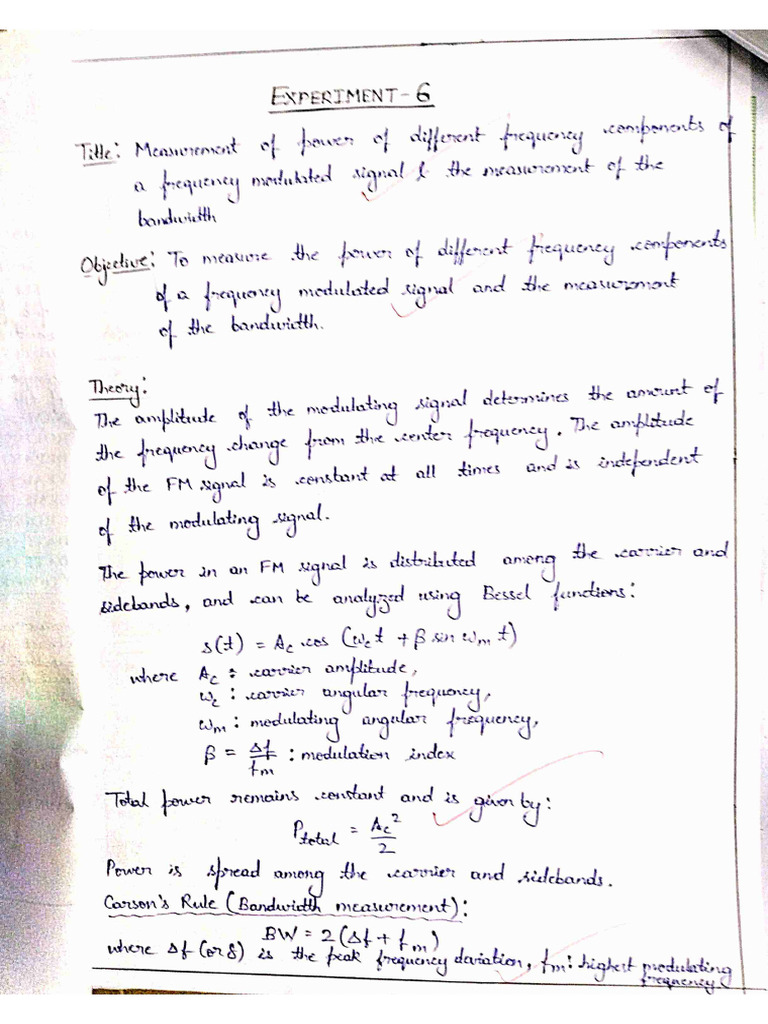 EXPERIMENT-6
Title: Measurement of power of different frequency components of
a frequency modulated signal & the measurement of the
bandwidth
Objective: To measure the power of different frequency components
of a frequency modulated signal and the measurement
of the bandwidth.
Theory:
The amplitude of the modulating signal determines the amount of
the frequency change from the center frequency. The amplitude
of the FM signal is constant at all times and is independent
of the modulating signal.
The power in an FM signal is distributed among the carrier and
sidebands, and can be analyzed using Bessel functions:
s(t) = Ac cos (ωct + β sin ωm t)
where Ac : carrier amplitude,
ωc : carrier angular frequency,
ωm : modulating angular frequency,
β = Δf/fm : modulation index
Total power remains constant and is given by:
Ptotal = Ac²/2
Power is spread among the carrier and sidebands.
Carson's Rule (Bandwidth measurement):
BW = 2(Δf + fm)
where Δf (or δ) is the peak frequency daviation, fm: highest modulating
frequency